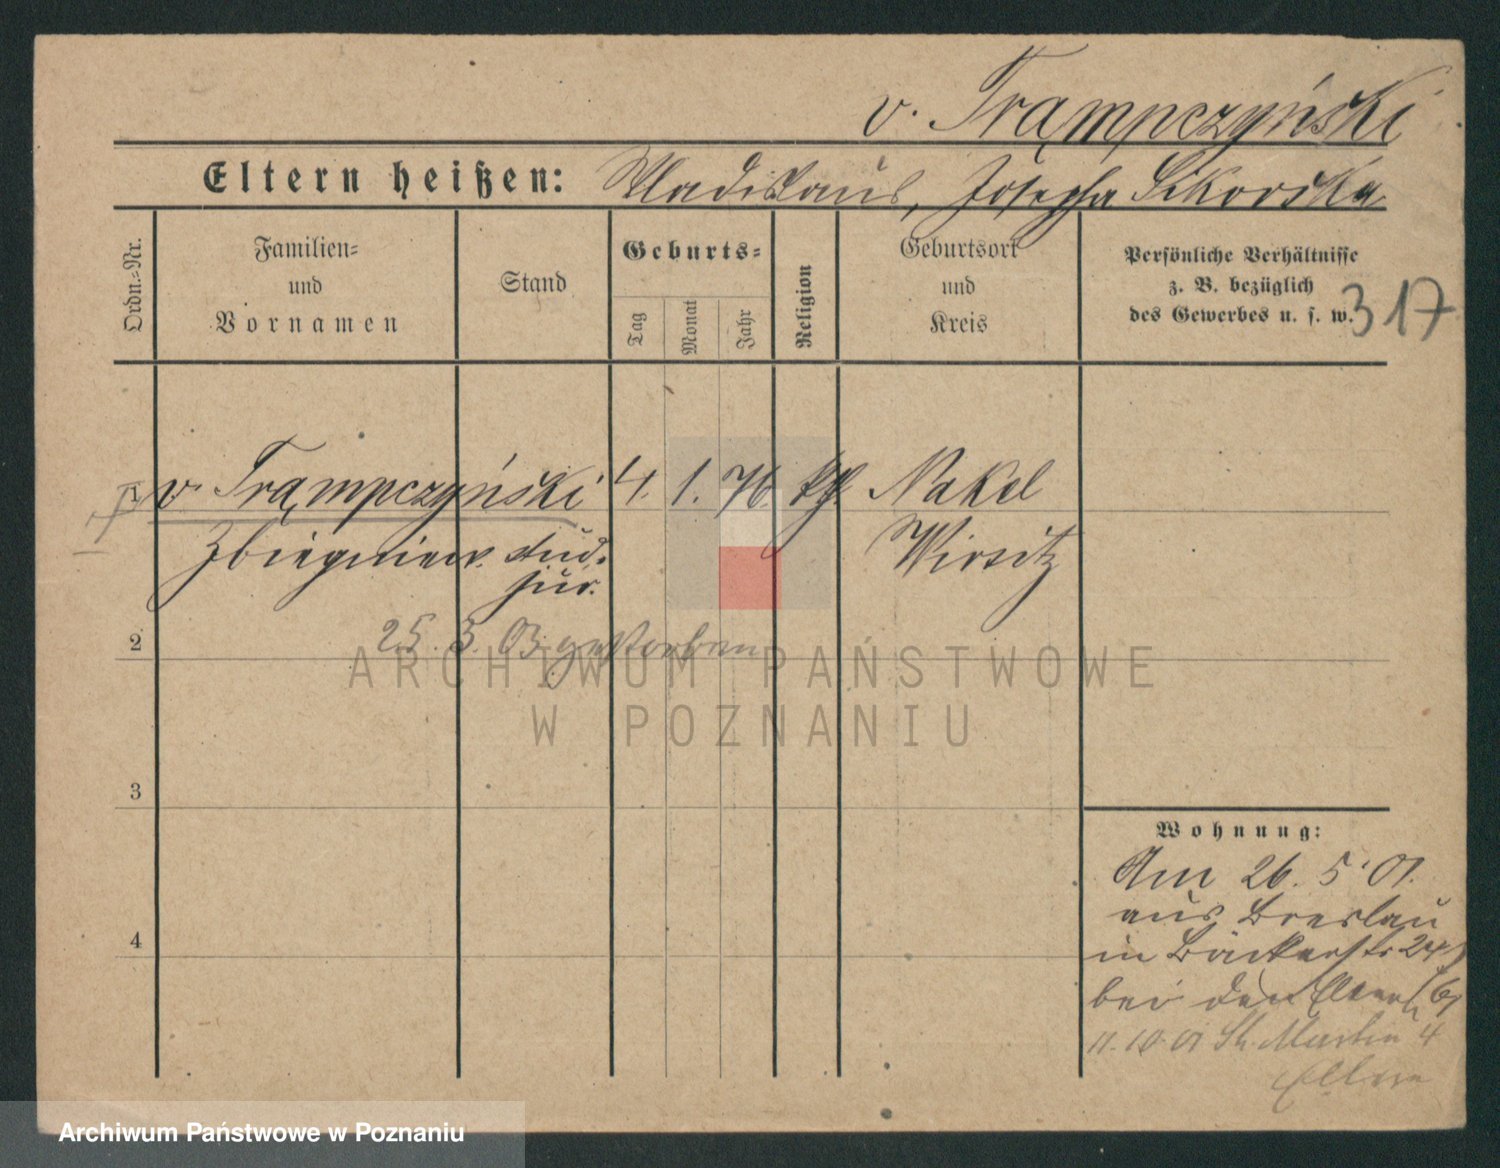 v. Trąmpczyński
Eltern heißen: Wladislaus, Josepha Sikorska
Ordn.-Nr.
Familien-
und
Vornamen
Stand
Geburts-
Tag
Monat
Jahr
Religion
Geburtsort
und
Kreis
Persönliche Verhältnisse
z. B. bezüglich
des Gewerbes u. s. w.
317
1 v. Trąmpczyński 4. 1. 76. kth. Nakel
Zbiegniew. stud. Wirsitz
jur.
2 25. 3. 03 gestorben
ARCHIWUM PAŃSTWOWE
W POZNANIU
3
Wohnung:
Am 26. 5. 01.
aus Breslau
4
in Bäckerstr. 24
bei den Eltern
11.10.01 St. Martin 4
Eltern
Archiwum Państwowe w Poznaniu